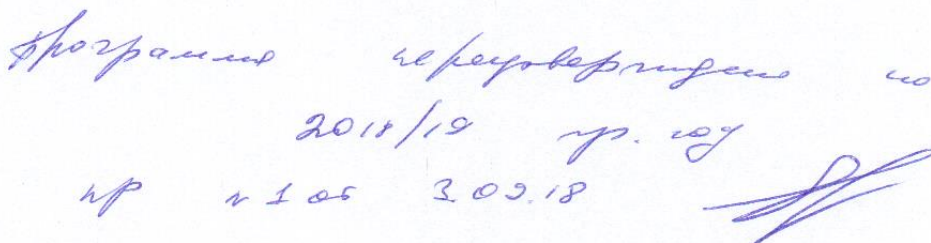 Программа переутверждена на
2018/19 уч. год
пр №1 от 3.09.18